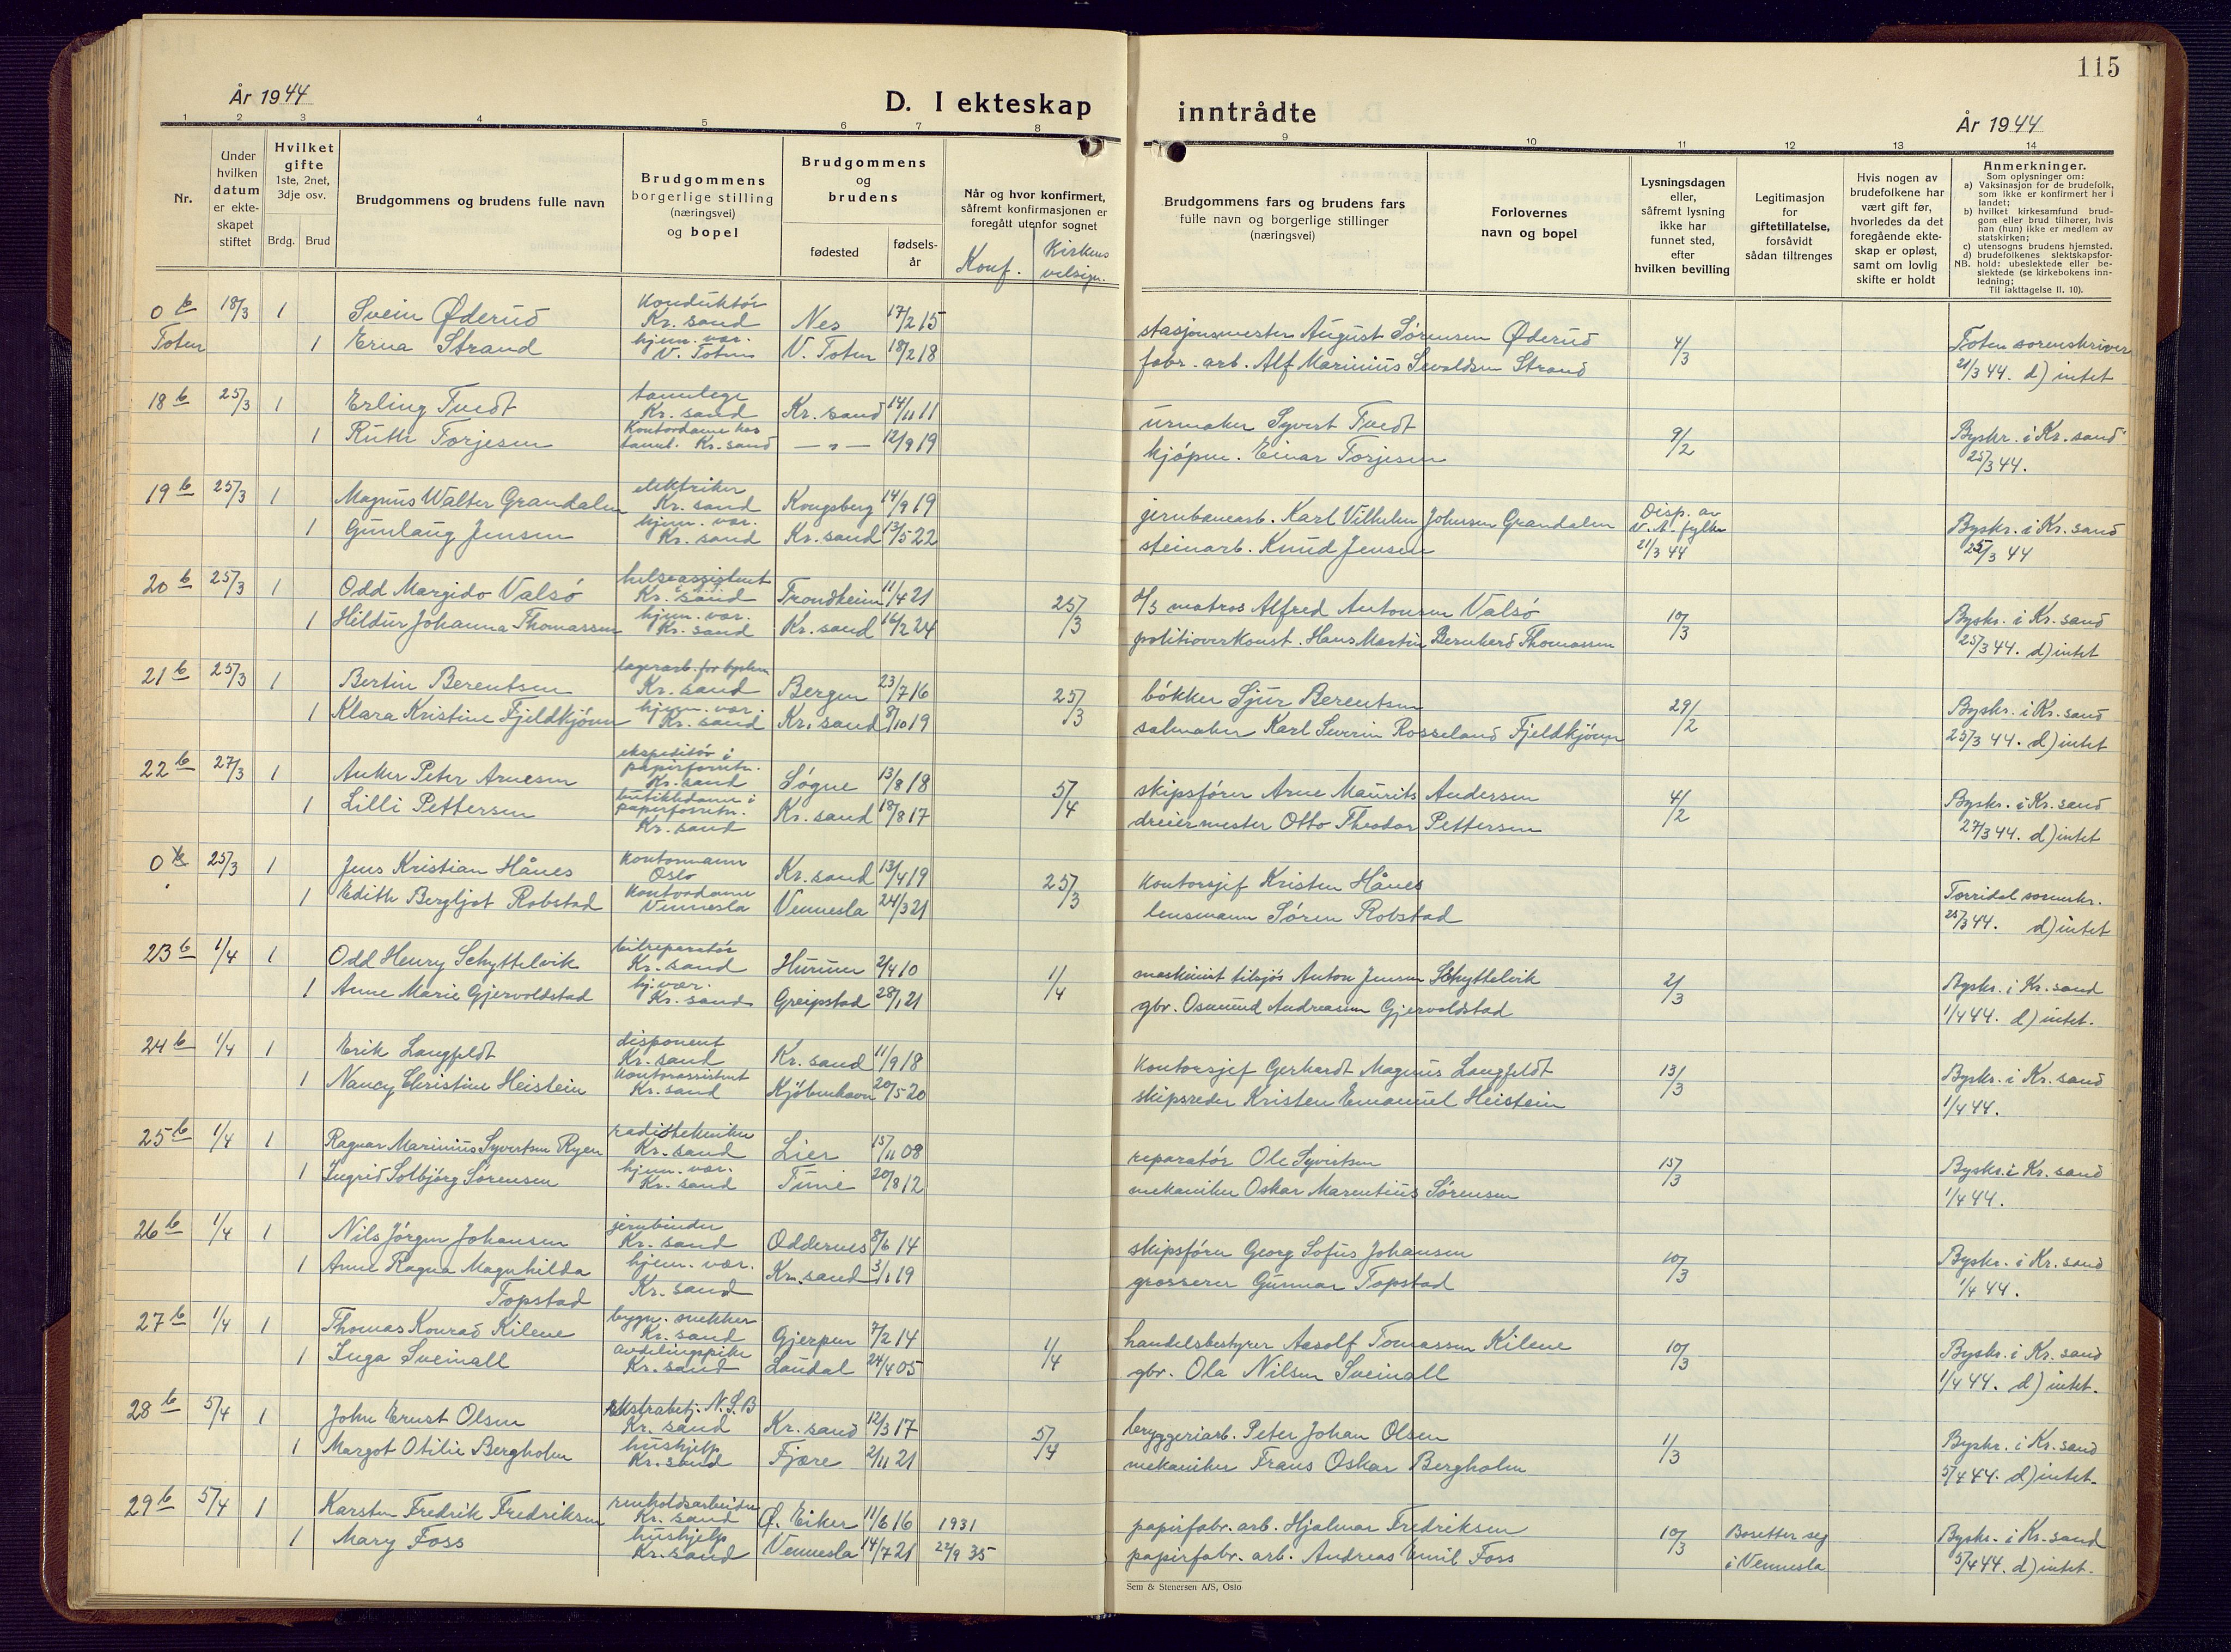 115
År 1944
D. I ekteskap inntrådte
År 1944
1 2 3 4 5 6 7 8 9 10 11 12 13 14
Nr.
Under hvilken datum er ekte-skapet stiftet
Hvilket gifte
1ste, 2net, 3dje osv.
Brdg. Brud
Brudgommens og brudens fulle navn
Brudgommens borgerlige stilling (næringsvei) og bopel
Brudgommens og brudens
fødested
fødsels-år
Når og hvor konfirmert, såfremt konfirmasjonen er foregått utenfor sognet
Konf. Kirkens velsign.
Brudgommens fars og brudens fars fulle navn og borgerlige stillinger (næringsvei)
Forlovernes navn og bopel
Lysningsdagen eller, såfremt lysning ikke har funnet sted, efter hvilken bevilling
Legitimasjon for giftetillatelse, forsåvidt sådan tiltrenges
Hvis nogen av brudefolkene har vært gift før, hvorledes da det foregående ekte-skap er opløst, samt om lovlig skifte er holdt
Anmerkninger.
Som oplysninger om:
a) Vaksinasjon for de brudefolk, som ikke er konfirmert her i landet;
b) hvilket kirkesamfund brud-gom eller brud tilhører, hvis han (hun) ikke er medlem av statskirken;
c) utensogns brudens hjemsted.
d) brudefolkenes slektskapsfor-
NB. hold: ubeslektede eller be-slektede (se kirkebokens inn-ledning;
Til iakttagelse II, 10).
0 b 18/3 1 Svein Øderud Konduktör Kr. sand Nes 17/2 15 stasjonsmester August Sørensen Øderud 4/3 Toten sorenskriver
Toten 1 Erna Strand hjem. vær. V. Toten V. Toten 18/2 18 fabr. arb. Alf Marinius Sevaldsen Strand 21/3 44. d) intet
18 b 25/3 1 Erling Tvedt tannlege Kr. sand Kr. sand 14/11 11 urmaker Syvert Tvedt 9/2 Byskr. i Kr. sand
1 Ruth Torjesen Kontordame hos tannl. Kr. sand — " — 12/9 19 kjöpm. Einar Torjesen 25/3 44.
19 b 25/3 1 Magnus Walter Grandalen elektriker Kr. sand Kongsberg 14/9 19 jernbanearb. Karl Vilhelm Johnsen Grandalen Disp. av V.A. fylke 21/3 44 Byskr. i Kr. sand
1 Gunlaug Jensen hjem. vær. Kr. sand Kr. sand 13/5 22 steinarb. Knud Jensen 25/3 44
20 b 25/3 1 Odd Margido Valsö helseassistent Kr. sand Trondheim 11/4 21 25/3 matros Alfred Antonsen Valsö 10/3 Byskr. i Kr. sand
1 Hildur Johanna Thomassen hjem. vær. Kr. sand Kr. sand 16/2 24 politioverkonst. Hans Martin Bernhard Thomassen 25/3 44. d) intet
21 b 25/3 1 Bertin Berentsen lagerarb. Kr. sand Bergen 23/7 16 25/3 bökker Sjur Berentsen 29/2 Byskr. i Kr. sand
1 Klara Kristine Fjeldkjönn hjem. vær. Kr. sand Kr. sand 8/10 19 salmaker Karl Severin Rosseland Fjeldkjönn 25/3 44. d) intet
22 b 27/3 1 Anker Peter Arnesen ekspeditör i papirforretn. Kr. sand Søgne 13/8 18 5/4 skipsförer Arne Maurits Andersen 4/2 Byskr. i Kr. sand
1 Lilli Pettersen butikkdame i papirforretn. Kr. sand Kr. sand 18/8 17 dreiermester Otto Theodor Pettersen 27/3 44. d) intet
0 b 25/3 1 Jens Kristian Hånes Kontormann Oslo Kr. sand 13/4 19 25/3 Kontorsjef Kristen Hånes Torridal sorenskr.
1 Edith Bergljot Robstad Kontordame Vennesla Vennesla 24/3 21 lensmann Sören Robstad 25/3 44. d) intet
23 b 1/4 1 Odd Henry Schyttelvik bilreparatör Kr. sand Hurum 2/4 10 1/4 maskinist tilsjös Anton Jensen Schyttelvik 2/3 Byskr. i Kr. sand
1 Anne Marie Gjervoldstad hj. vær. Kr. sand Greipstad 28/1 21 gbr. Osmund Andreassen Gjervoldstad 1/4 44. d) intet.
24 b 1/4 1 Erik Langfeldt disponent Kr. sand Kr. sand 11/9 18 Kontorsjef Gerhardt Magnus Langfeldt 13/3 Byskr. i Kr. sand
1 Nancy Christine Heistein Kontorassistent Kr. sand Kjöbenhavn 20/5 20 skipsreder Kristen Emanuel Heistein 1/4 44.
25 b 1/4 1 Ragnar Marinius Syvertsen Ryen radiotekniker Kr. sand Lier 15/11 08 reparatör Ole Syvertsen 15/3 Byskr. i Kr. sand
1 Ingrid Solbjörg Sörensen hjem. vær. Kr. sand Tune 20/8 12 mekaniker Oskar Marentius Sörensen 1/4 44.
26 b 1/4 1 Nils Jörgen Johansen jernbinder Kr. sand Oddernes 8/6 14 skipsförer Georg Sofus Johansen 10/3 Byskr. i Kr. sand
1 Anne Ragna Magnhilda Topstad hjem. vær. Kr. sand Kr. sand 3/1 19 grosserer Gunnar Topstad 1/4 44.
27 b 1/4 1 Thomas Konrad Kilene bygn. snekker Kr. sand Gjerpen 7/2 14 1/4 handelsbestyrer Aasolf Tomassen Kilene 10/3 Byskr. i Kr. sand
1 Inga Sveinall avdelingspike Kr. sand Laudal 24/4 05 gbr. Ola Nilsen Sveinall 1/4 44. d) intet.
28 b 5/4 1 John Ernst Olsen ekstrabetj. N.S.B Kr. sand Kr. sand 12/3 17 5/4 bryggeriarb. Peter Johan Olsen 1/3 Byskr. i Kr. sand
1 Margot Otilie Bergholm hushjelp Kr. sand Fjære 2/11 21 mekaniker Frans Oskar Bergholm 5/4 44. d) intet.
29 b 5/4 1 Karsten Fredrik Fredriksen renholdsarbeider Kr. sand Ø. Eiker 11/6 16 1931 papirfabr. arb. Hjalmar Fredriksen 10/3 Bosetter seg Byskr. i Kr. sand
1 Mary Foss hushjelp Kr. sand Vennesla 14/7 21 22/9 35 papirfabr. arb. Andreas Emil Foss i Vennesla 5/4 44. d) intet.
Sem & Stenersen A/S, Oslo